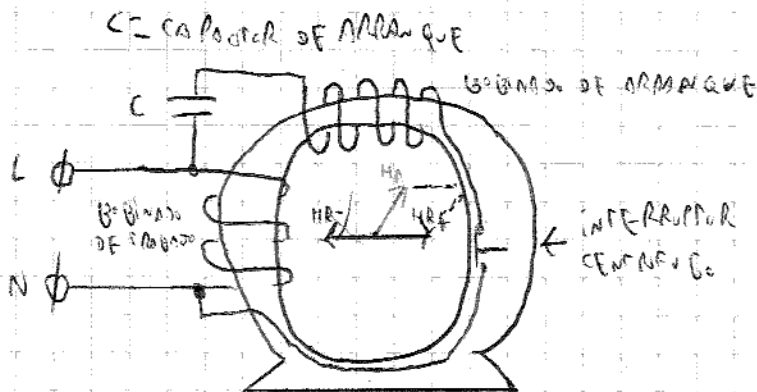 C= CAPACITOR DE ARRANQUE
BOBINADO DE ARRANQUE
C
L
HA
BOBINADO
DE TRABAJO
HR-
HRF
INTERRUPTOR
CENTRIFUGO
N